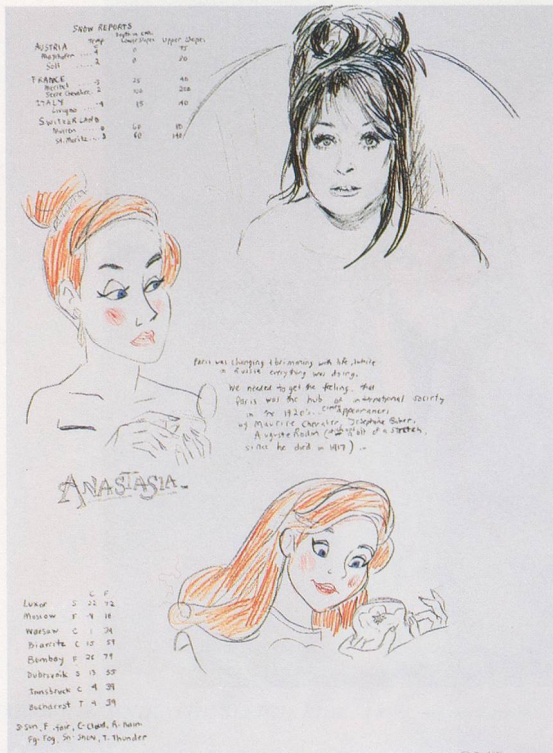 SNOW REPORTS
Temp Depth in cm. Lower Slopes Upper Slopes
AUSTRIA
Soll 2 0 20
FRANCE
Meribel
Serre Chevalier 2 200
ITALY
Livigno 15 40
SWITZERLAND
Murren 60
St. Moritz 60 140
Paris was changing & brimming with life, while
in Russia everything was dying.
We needed to get the feeling that
Paris was the hub of international society
in the 1920's... cameo appearances
by Maurice Chevalier, Josephine Baker,
Auguste Rodin ( of a stretch,
since he died in 1917) ...
ANASTASIA
C F
Luxor S 22 72
Moscow F 16
Warsaw C 1 34
Biarritz C 15 59
Bombay F 26 79
Dubrovnik S 13 55
Innsbruck C 4 39
Bucharest T 4 39
S-Sun, F-fair, C-Cloud, R-Rain
Fg-Fog, Sn-Snow, T-Thunder